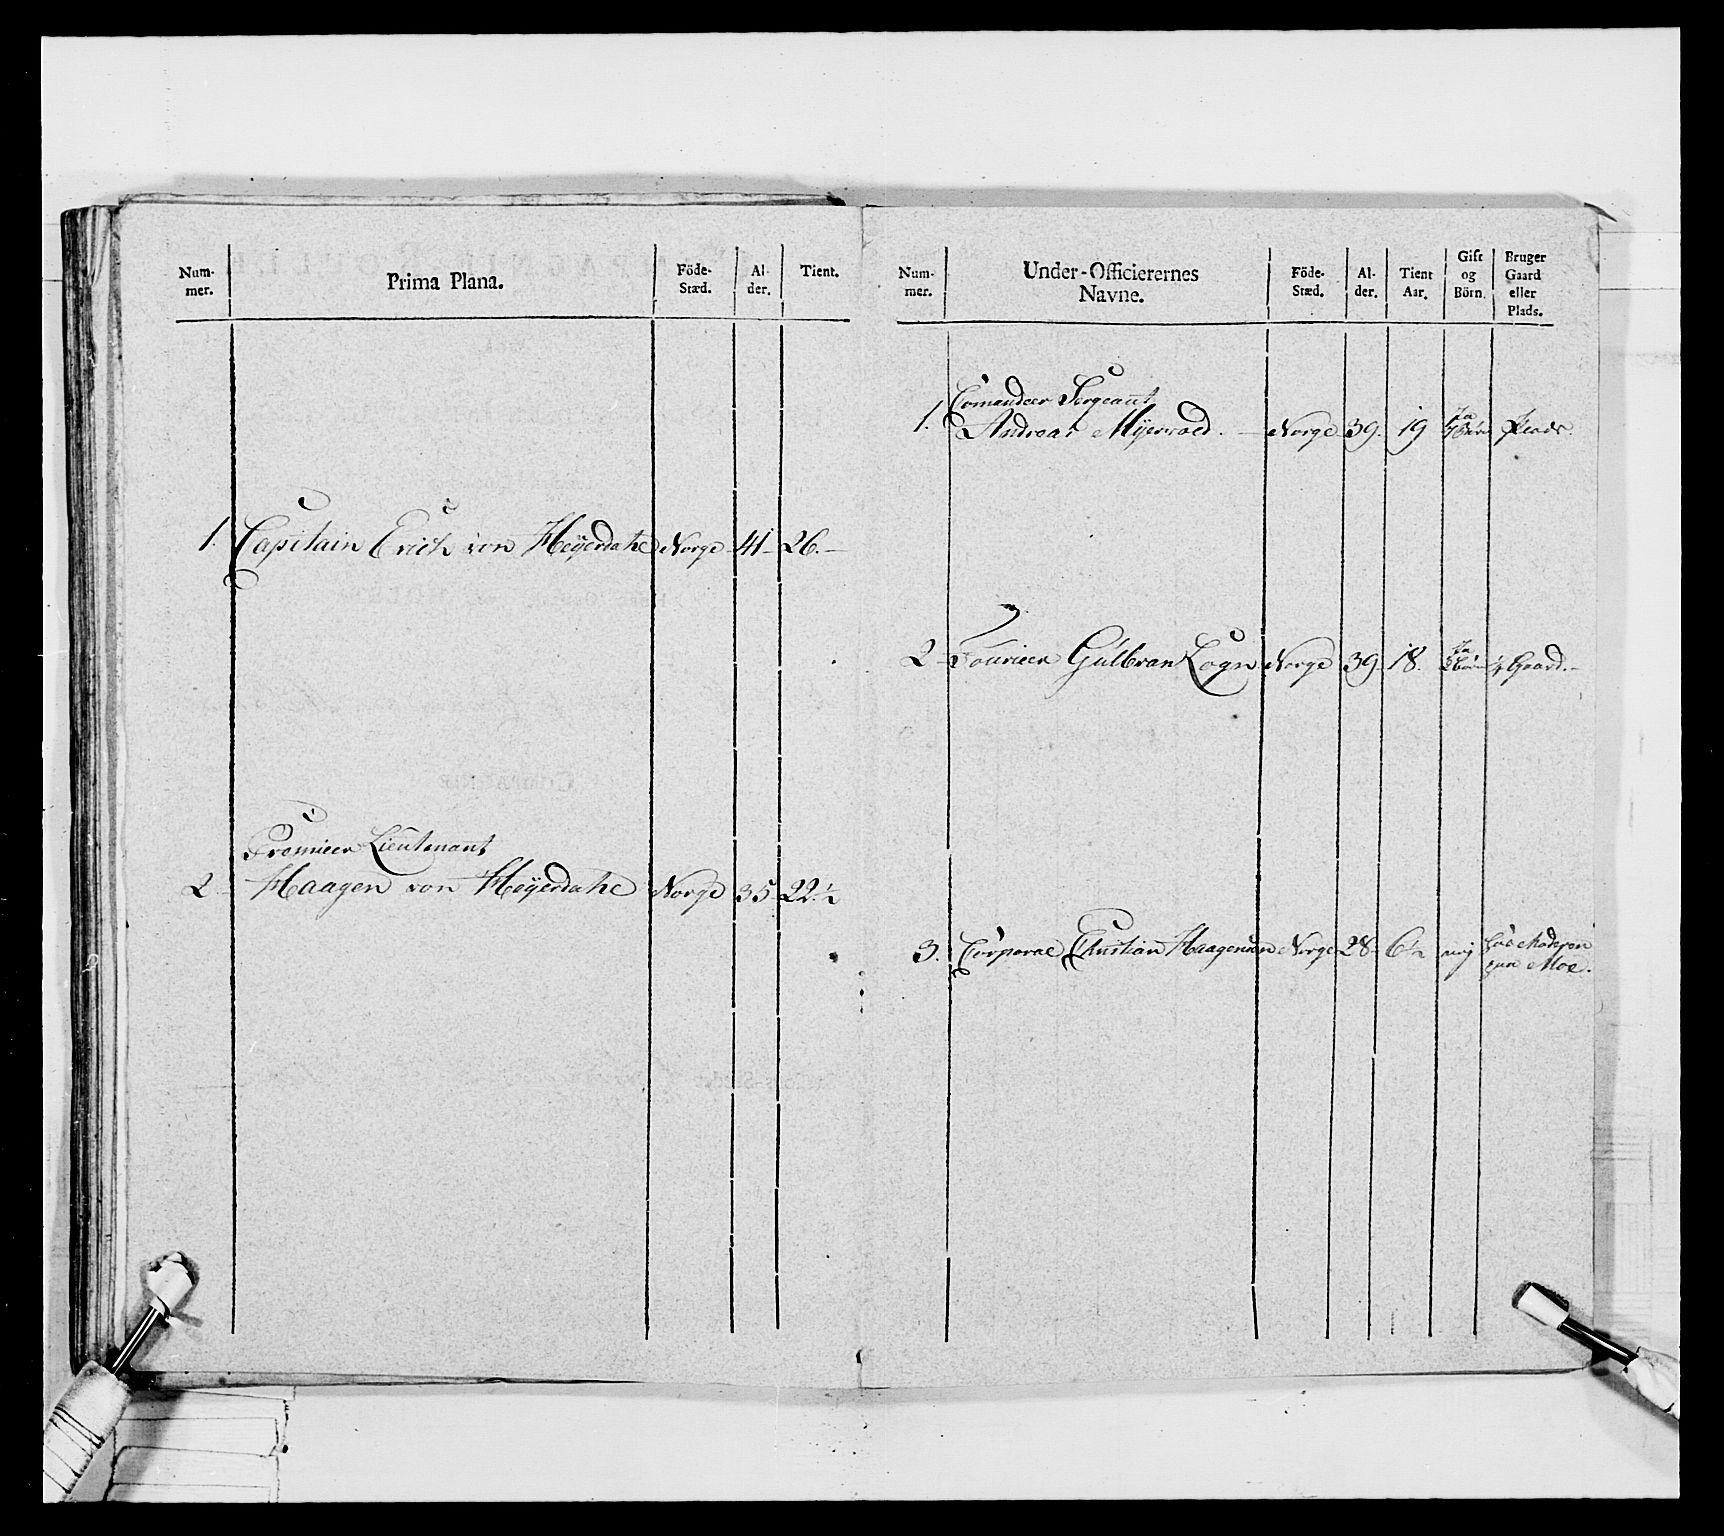 Num-
mer.
Prima Plana.
Föde-
Stæd.
Al-
der.
Tient.
1. Capitain Erich von Heyerdahl Norge 41 26.
Premieer Lieutenant
2 Haagen von Heyerdahl Norge 35 22 ½
Num-
mer.
Under-Officierernes
Navne.
Föde-
Stæd.
Al-
der.
Tient
Aar.
Gift
og
Börn.
Bruger
Gaard
eller
Plads.
Comandeer Sergeant
1. Andreas Norge 39. 19 Ja Börn Plads.
2 Fourieer Gulbran Logn Norge 39. 18. Ja Börn Gaard.
3. Corporal Christian Haagensen Norge 28 6½ nej
Moe.